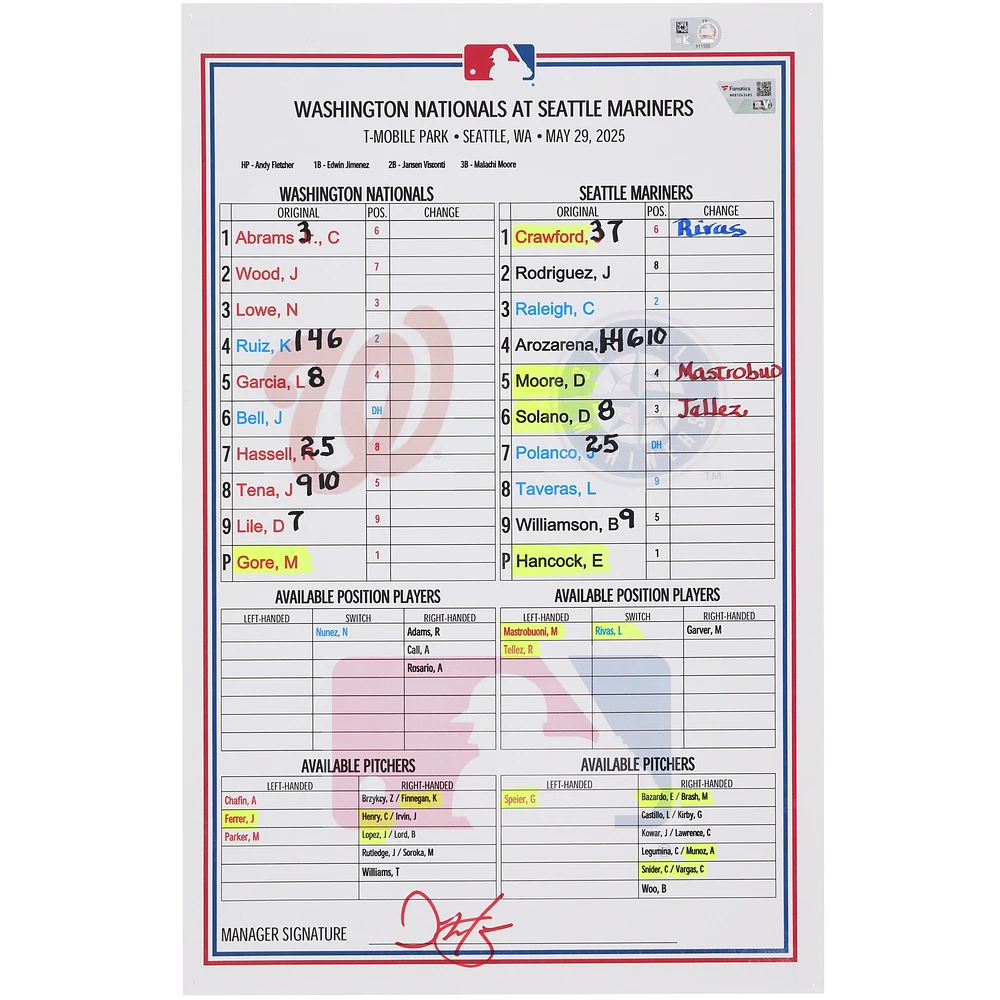 K
FP
911500
Fanatics
WASHINGTON NATIONALS AT SEATTLE MARINERS
T-MOBILE PARK • SEATTLE, WA • MAY 29, 2025
HP - Andy Fletcher 1B - Edwin Jimenez 2B - Jansen Visconti 3B - Malachi Moore
WASHINGTON NATIONALS SEATTLE MARINERS
ORIGINAL POS. CHANGE ORIGINAL POS. CHANGE
1 Abrams 3 ., C 6 1 Crawford, 37 6 Rivas
2 Wood, J 7 2 Rodriguez, J 8
3 Lowe, N 3 3 Raleigh, C 2
4 Ruiz, K 146 2 4 Arozarena, 610
5 Garcia, L 8 4 5 Moore, D 4 Mastrobuo
6 Bell, J DH 6 Solano, D 8 3 Tellez
7 Hassell, R 25 8 7 Polanco, J 25 DH
8 Tena, J 910 5 8 Taveras, L 9
9 Lile, D 7 9 9 Williamson, B 9 5
P Gore, M 1 P Hancock, E 1
AVAILABLE POSITION PLAYERS AVAILABLE POSITION PLAYERS
LEFT-HANDED SWITCH RIGHT-HANDED LEFT-HANDED SWITCH RIGHT-HANDED
Nunez, N Adams, R Mastrobuoni, M Rivas, L Garver, M
Call, A Tellez, R
Rosario, A
AVAILABLE PITCHERS AVAILABLE PITCHERS
LEFT-HANDED RIGHT-HANDED LEFT-HANDED RIGHT-HANDED
Chafin, A Brzykcy, Z / Finnegan, K Speier, G Bazardo, E / Brash, M
Ferrer, J Henry, C / Irvin, J Castillo, L / Kirby, G
Parker, M Lopez, J / Lord, B Kowar, J / Lawrence, C
Rutledge, J / Soroka, M Legumina, C / Munoz, A
Williams, T Snider, C / Vargas, C
Woo, B
MANAGER SIGNATURE